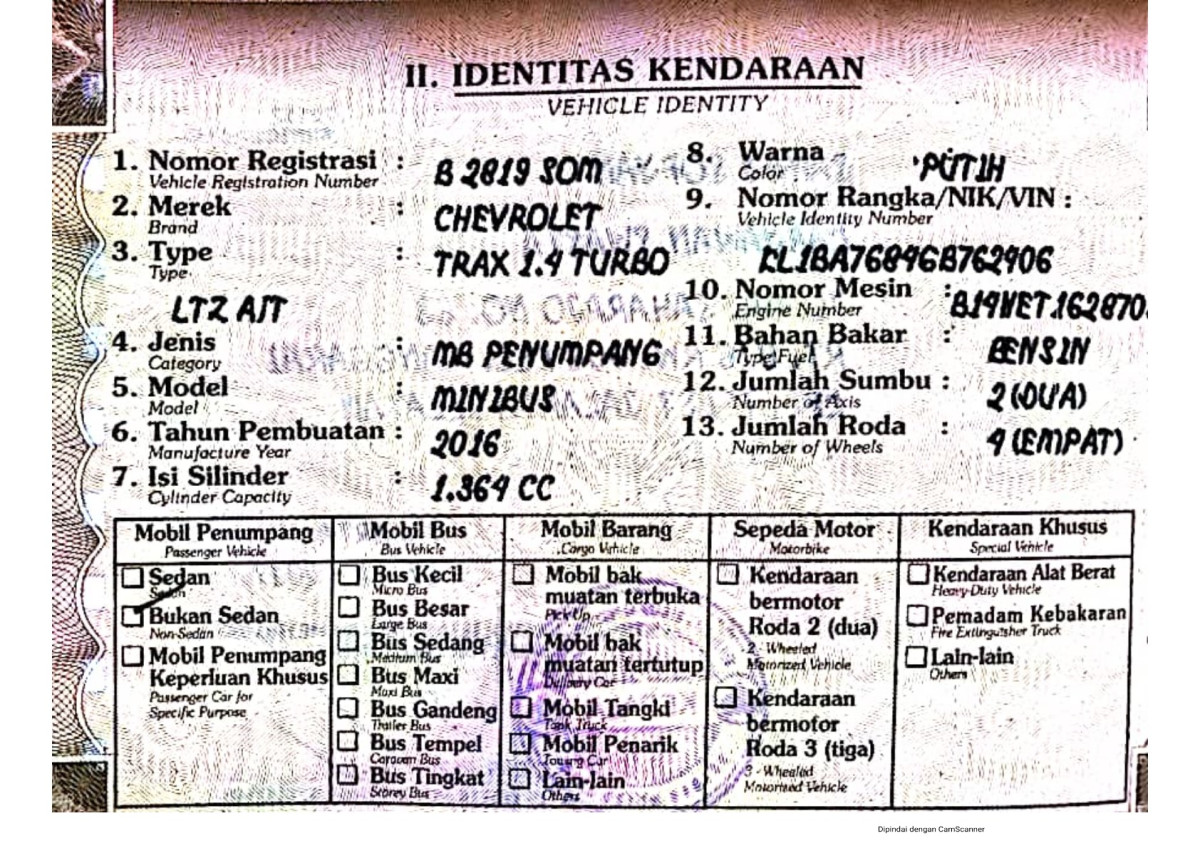 II. IDENTITAS KENDARAAN
VEHICLE IDENTITY
1. Nomor Registrasi : B 2819 SOM
Vehicle Registration Number
2. Merek : CHEVROLET
Brand
3. Type : TRAX 1.4 TURBO
Type
LTZ A/T
4. Jenis : MB PENUMPANG
Category
5. Model : MINIBUS
Model
6. Tahun Pembuatan : 2016
Manufacture Year
7. Isi Silinder : 1.364 CC
Cylinder Capacity
8. Warna : PUTIH
Color
9. Nomor Rangka/NIK/VIN :
Vehicle Identity Number
10. Nomor Mesin :
Engine Number
11. Bahan Bakar : BENSIN
Type Fuel
12. Jumlah Sumbu : 2 (DUA)
Number of Axis
13. Jumlah Roda : 4 (EMPAT)
Number of Wheels
Mobil Penumpang
Passenger Vehicle
Sedan
Sedan
Bukan Sedan
Non-Sedan
Mobil Penumpang
Keperluan Khusus
Passenger Car for
Specific Purpose
Mobil Bus
Bus Vehicle
Bus Kecil
Micro Bus
Bus Besar
Large Bus
Bus Sedang
Medium Bus
Bus Maxi
Maxi Bus
Bus Gandeng
Thailer Bus
Bus Tempel
Caravan Bus
Bus Tingkat
Storey Bus
Mobil Barang
Cargo Vehicle
Mobil bak
muatan terbuka
Pick Up
Mobil bak
muatan tertutup
Delivery Car
Mobil Tangki
Tank Truck
Mobil Penarik
Towing Car
Lain-lain
Others
Sepeda Motor
Motorbike
Kendaraan
bermotor
Roda 2 (dua)
2 - Wheeled
Motorized Vehicle
Kendaraan
bermotor
Roda 3 (tiga)
3 - Wheeled
Motorized Vehicle
Kendaraan Khusus
Special Vehicle
Kendaraan Alat Berat
Heavy-Duty Vehicle
Pemadam Kebakaran
Fire Extinguisher Truck
Lain-lain
Others
Dipindai dengan CamScanner